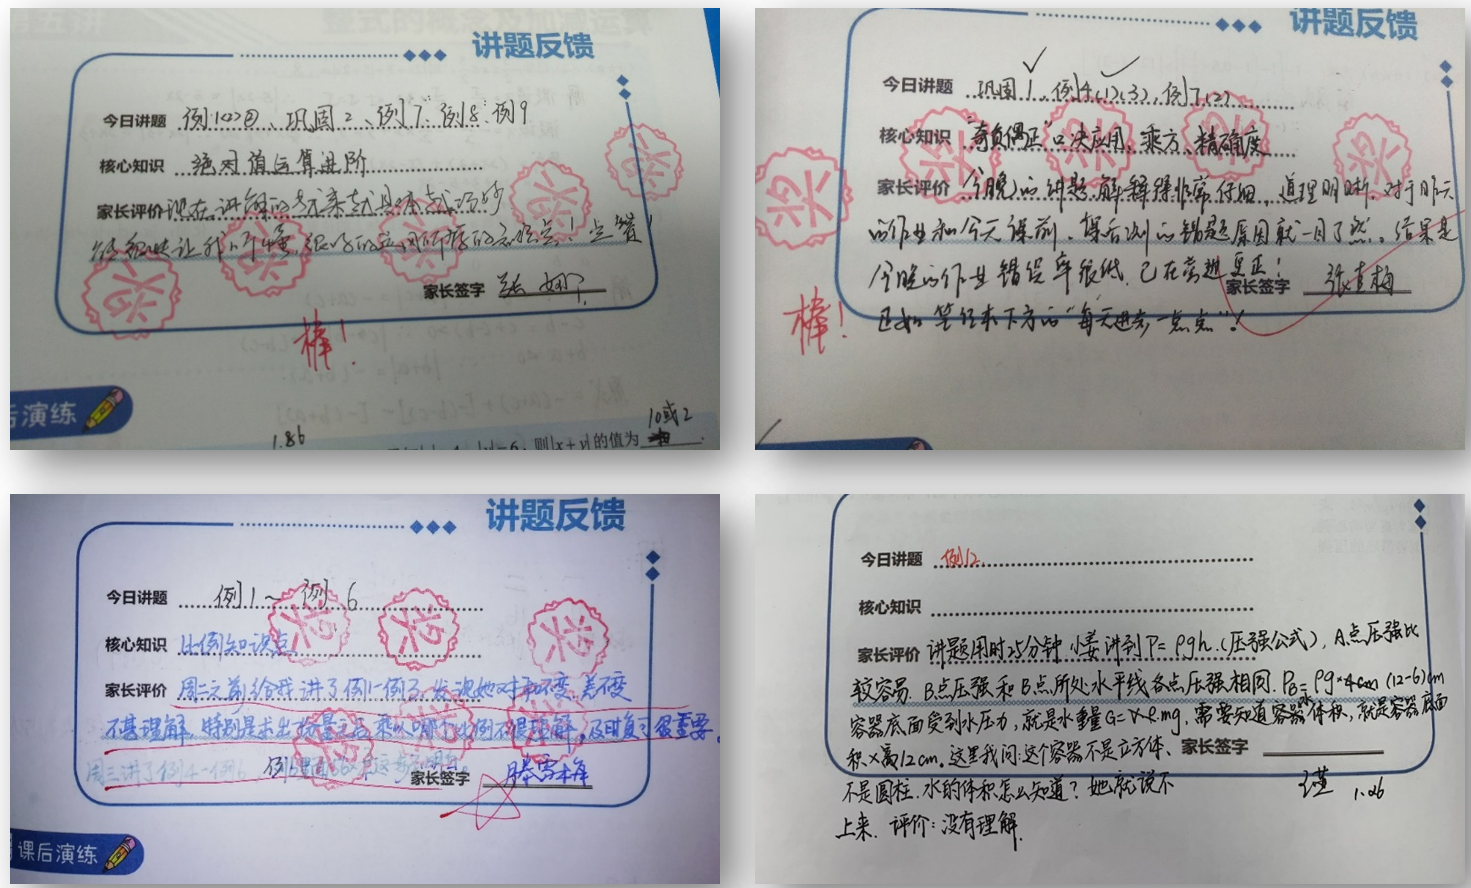 讲题反馈
今日讲题 例1②④、巩固2、例7、例8、例9
核心知识 绝对值运算进阶
家长评价 现在讲解的
让我 点赞！
家长签字
棒！
后演练
1.86
则|x+y|的值为 10或2
讲题反馈
今日讲题 巩固1、例4(1)(3)、例7(2)
核心知识 "奇负偶正"口决应用、乘方、精确度
家长评价 今晚的讲题,解释得非常仔细,道理明晰,对于昨天
的作业和今天课前、课后测的错题原因就一目了然。结果是
今晚的作业错误率很低,已在旁边更正!
家长签字 张 梅
正如笔任来下方的"每天进步一点点"!
棒！
讲题反馈
今日讲题 例1~例6
核心知识 比例知识点
家长评价 周二之前给我讲了例1-例3,发现她对和不变,差不变
不甚理解,特别是求出 量之后乘以哪个比例不很理解,及时复习很重要。
周三讲了例4-例6 例6里面
家长签字 滕雪梅
课后演练
今日讲题 例12
核心知识
家长评价 讲题用时25分钟,小姜讲到P=ρgh(压强公式),A点压强比
较容易.B点压强和B点所处水平线各点压强相同.PB=ρg*4cm (12-6)cm
容器底面受到水压力,就是水重量G= mg,需要知道容器体积,就是容器底面
积×高12cm.这里我问:这个容器不是立方体、
家长签字
不是圆柱,水的体积怎么知道?她就说不
上来.评价:没有理解.
1.26